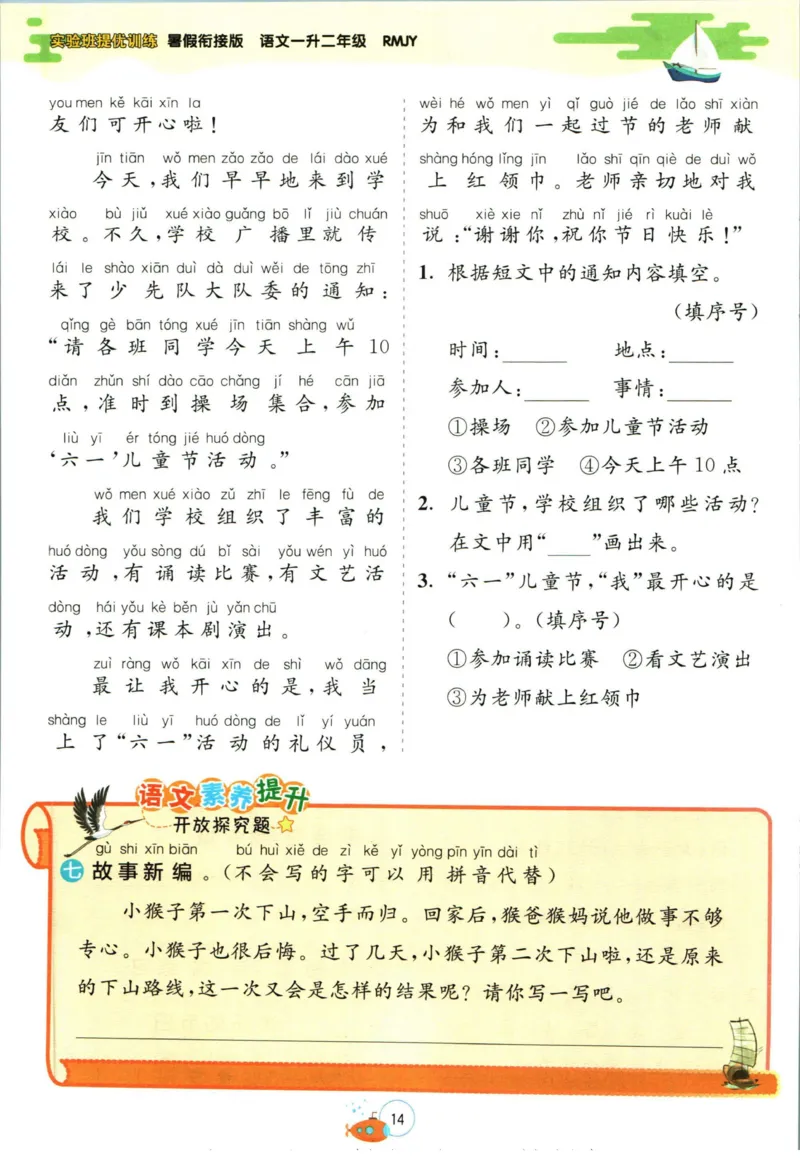 实验班提优训练 暑假衔接版 语文一升二年级 RMJY
you men kě kāi xīn la
友们可开心啦！
jīn tiān wǒ men zǎo zǎo de lái dào xué
今天，我们早早地来到学
xiào bù jiǔ xué xiào guǎng bō lǐ jiù chuán
校。不久，学校广播里就传
lái le shào xiān duì dà duì wěi de tōng zhī
来了少先队大队委的通知：
qǐng gè bān tóng xué jīn tiān shàng wǔ
“请各班同学今天上午10
diǎn zhǔn shí dào cāo chǎng jí hé cān jiā
点，准时到操场集合，参加
liù yī ér tóng jié huó dòng
‘六一’儿童节活动。”
wǒ men xué xiào zǔ zhī le fēng fù de
我们学校组织了丰富的
huó dòng yǒu sòng dú bǐ sài yǒu wén yì huó
活动，有诵读比赛，有文艺活
dòng hái yǒu kè běn jù yǎn chū
动，还有课本剧演出。
zuì ràng wǒ kāi xīn de shì wǒ dāng
最让我开心的是，我当
shàng le liù yī huó dòng de lǐ yí yuán
上了“六一”活动的礼仪员，
wèi hé wǒ men yì qǐ guò jié de lǎo shī xiàn
为和我们一起过节的老师献
shàng hóng lǐng jīn lǎo shī qīn qiè de duì wǒ
上红领巾。老师亲切地对我
shuō xiè xie nǐ zhù nǐ jié rì kuài lè
说：“谢谢你，祝你节日快乐！”
1. 根据短文中的通知内容填空。
（填序号）
时间：______ 地点：______
参加人：______ 事情：______
①操场 ②参加儿童节活动
③各班同学 ④今天上午10点
2. 儿童节，学校组织了哪些活动？
在文中用“____”画出来。
3. “六一”儿童节，“我”最开心的是
（ ）。（填序号）
①参加诵读比赛 ②看文艺演出
③为老师献上红领巾
语文素养提升
开放探究题
gù shi xīn biān bú huì xiě de zì kě yǐ yòng pīn yīn dài tì
七 故事新编。（不会写的字可以用拼音代替）
小猴子第一次下山，空手而归。回家后，猴爸猴妈说他做事不够
专心。小猴子也很后悔。过了几天，小猴子第二次下山啦，还是原来
的下山路线，这一次又会是怎样的结果呢？请你写一写吧。
14